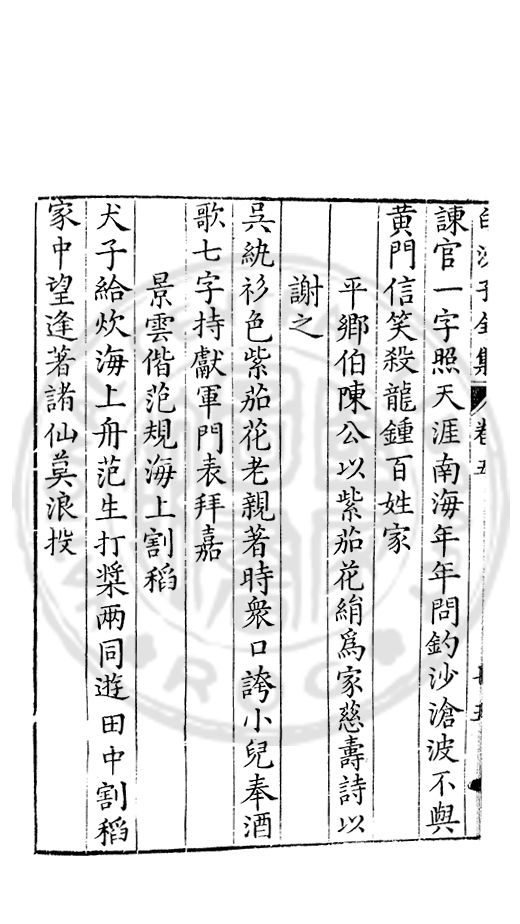 白沙子全集 卷五
諫官一字照天涯南海年年問釣沙滄波不與
黄門信笑殺龍鍾百姓家
平鄉伯陳公以紫茄花絹爲家慈壽詩以
謝之
吳紈衫色紫茄花老親著時衆口誇小兒奉酒
歌七字持獻軍門表拜嘉
景雲偕范規海上割稻
犬子給炊海上舟范生打槳兩同遊田中割稻
家中望逢著諸仙莫浪投